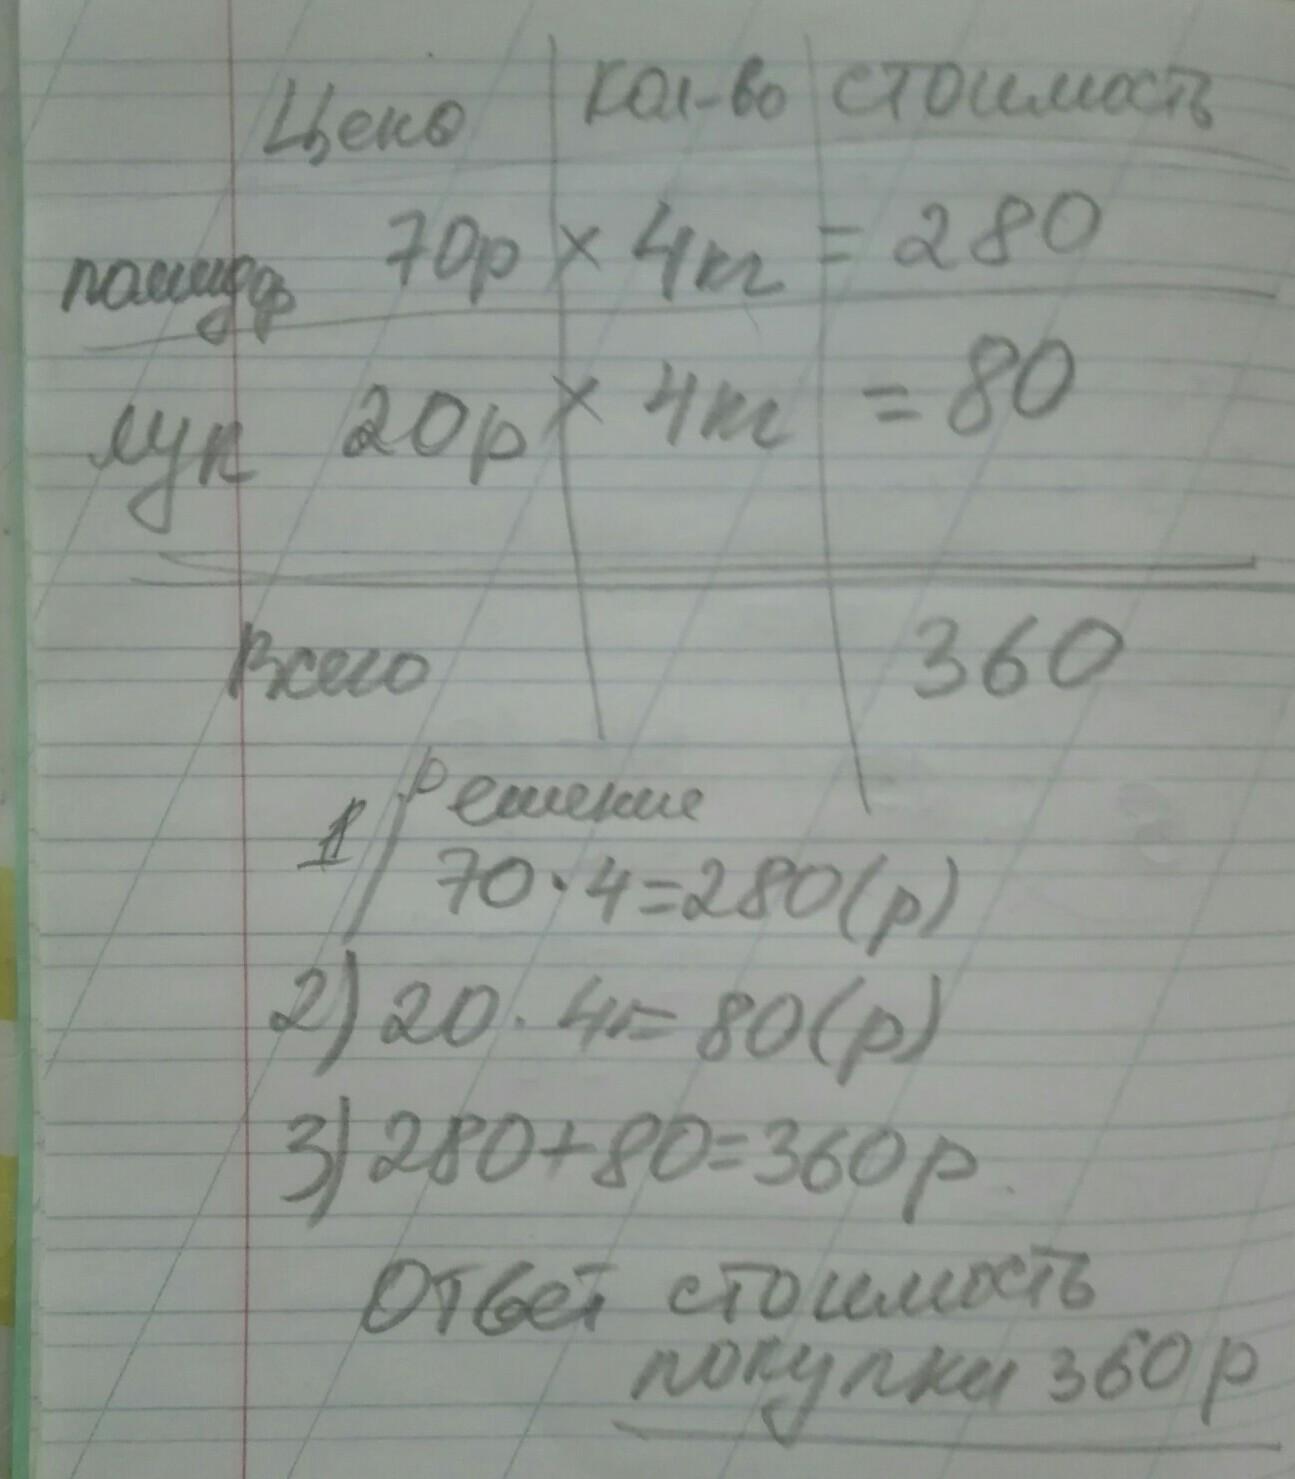 Цена кол-во стоимость
помидор 70р × 4кг = 280
лук 20р × 4кг = 80
Всего 360
Решение
1) 70·4=280(р)
2) 20·4=80(р)
3) 280+80=360р.
Ответ стоимость
покупки 360р